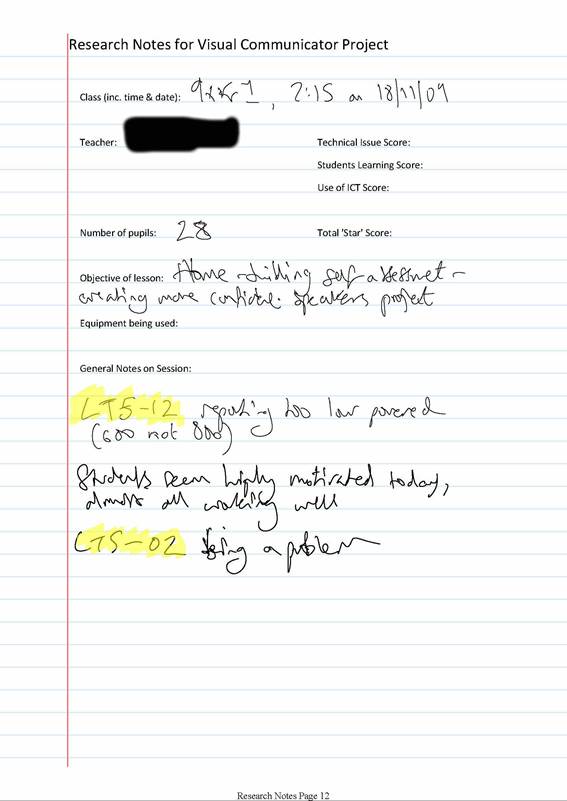 Research Notes for Visual Communicator Project
Class (inc. time & date): , 2:15 on 18/11/09
Teacher:
Technical Issue Score:
Students Learning Score:
Use of ICT Score:
Number of pupils: 28
Total 'Star' Score:
Objective of lesson: Home self assessment -
creating more speakers project
Equipment being used:
General Notes on Session:
LT5-12 reporting too low powered
(600 not 800)
Students seem highly motivated today,
almost all working well
LT5-02 being a problem
Research Notes Page 12